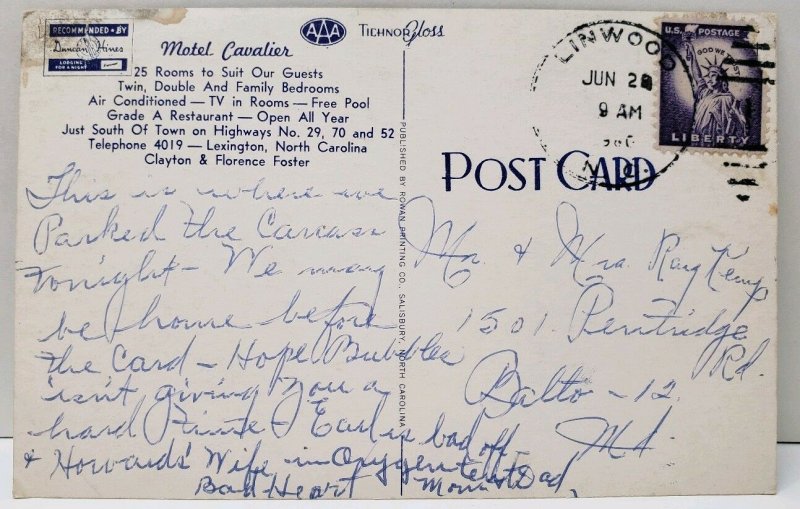 RECOMMENDED BY
Duncan Hines
LODGING FOR A NIGHT
Motel Cavalier
AAA
TICHNOR Gloss
25 Rooms to Suit Our Guests
Twin, Double And Family Bedrooms
Air Conditioned — TV in Rooms — Free Pool
Grade A Restaurant — Open All Year
Just South Of Town on Highways No. 29, 70 and 52
Telephone 4019 — Lexington, North Carolina
Clayton & Florence Foster
PUBLISHED BY ROWAN PRINTING CO., SALISBURY, NORTH CAROLINA
POST CARD
LINWOOD
JUN 28
9 AM
N.C.
U.S. POSTAGE
IN GOD WE TRUST
LIBERTY
This is where we
Parked the Carcass
tonight – We may
be home before
the Card – Hope Bubbles
isn't giving you a
hard time – Earl is bad off
& Howards' Wife in Oxygen tent
Bad Heart Mom & Dad
Mr. & Mrs. Ray Kemp
1501 Pentridge
Rd.
Balto – 12.
Md.